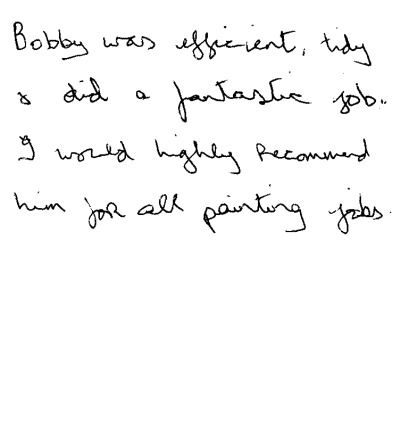 Bobby was efficient, tidy
& did a fantastic job.
I would highly recommend
him for all painting jobs.